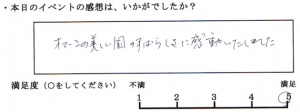 ・本日のイベントの感想は、いかがでしたか？
オマーンの美しい国 すばらしさに感動いたしました
満足度（○をしてください） 不満 満足
1 2 3 4 5